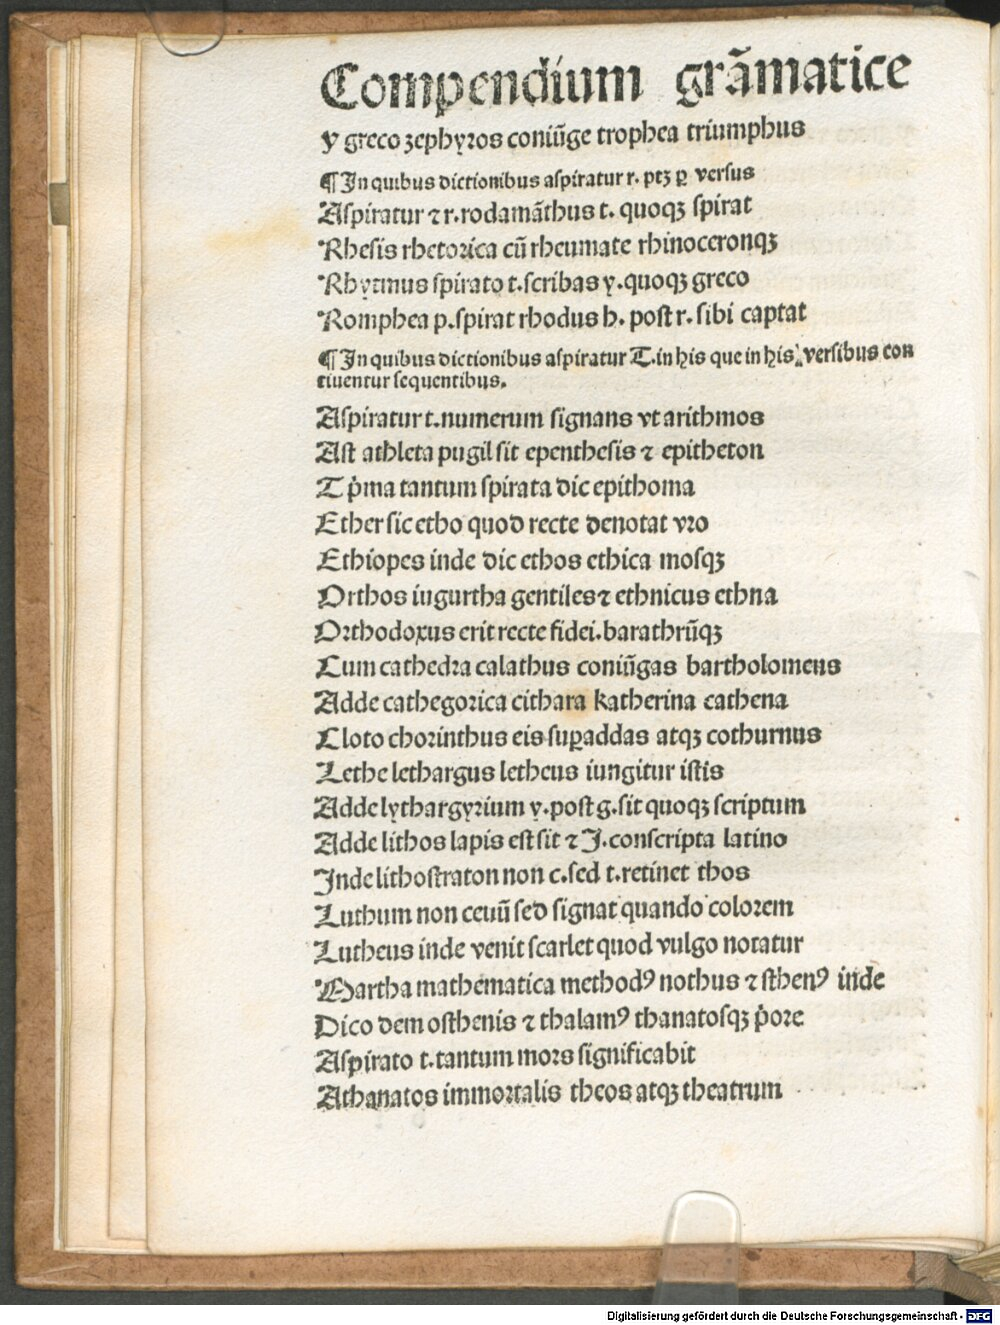 Compendium grãmatice
y greco zephyros coniũge trophea triumphus
¶ In quibus dictionibus aspiratur r. ptꝫ ꝑ versus
Aspiratur ⁊ r. rodamãthus t. quoqꝫ spirat
Rhesis rhetorica cũ rheumate rhinoceronqꝫ
Rhytmus spirato t. scribas y. quoqꝫ greco
Romphea p. spirat rhodus h. post r. sibi captat
¶ In quibus dictionibus aspiratur T. in his que in his versibus con
tiuentur sequentibus.
Aspiratur t. numerum signans vt arithmos
Ast athleta pugil sit epenthesis ⁊ epitheton
T p̃ma tantum spirata dic epithoma
Ether sic etho quod recte denotat vro
Ethiopes inde dic ethos ethica mosqꝫ
Orthos iugurtha gentiles ⁊ ethnicus ethna
Orthodoxus erit recte fidei. barathrũqꝫ
Cum cathedra calathus coniũgas bartholomeus
Adde cathegorica cithara katherina cathena
Cloto chorinthus eis suꝑaddas atqꝫ cothurnus
Lethe lethargus letheus iungitur istis
Adde lythargyrium y. post g. sit quoqꝫ scriptum
Adde lithos lapis est sit ⁊ J. conscripta latino
Inde lithostraton non c. sed t. retinet thos
Luthum non ceuũ sed signat quando colorem
Lutheus inde venit scarlet quod vulgo notatur
Martha mathematica methodꝰ nothus ⁊ sthenꝰ inde
Dico demosthenis ⁊ thalamꝰ thanatosqꝫ p̃ore
Aspirato t. tantum mors significabit
Athanatos immortalis theos atqꝫ theatrum
Digitalisierung gefördert durch die Deutsche Forschungsgemeinschaft - DFG